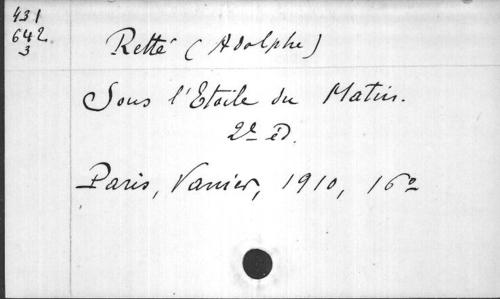 431
642
3
Retté (Adolphe)
Sous l'Etoile du Matin.
2e éd.
Paris, Vanier, 1910, 16o